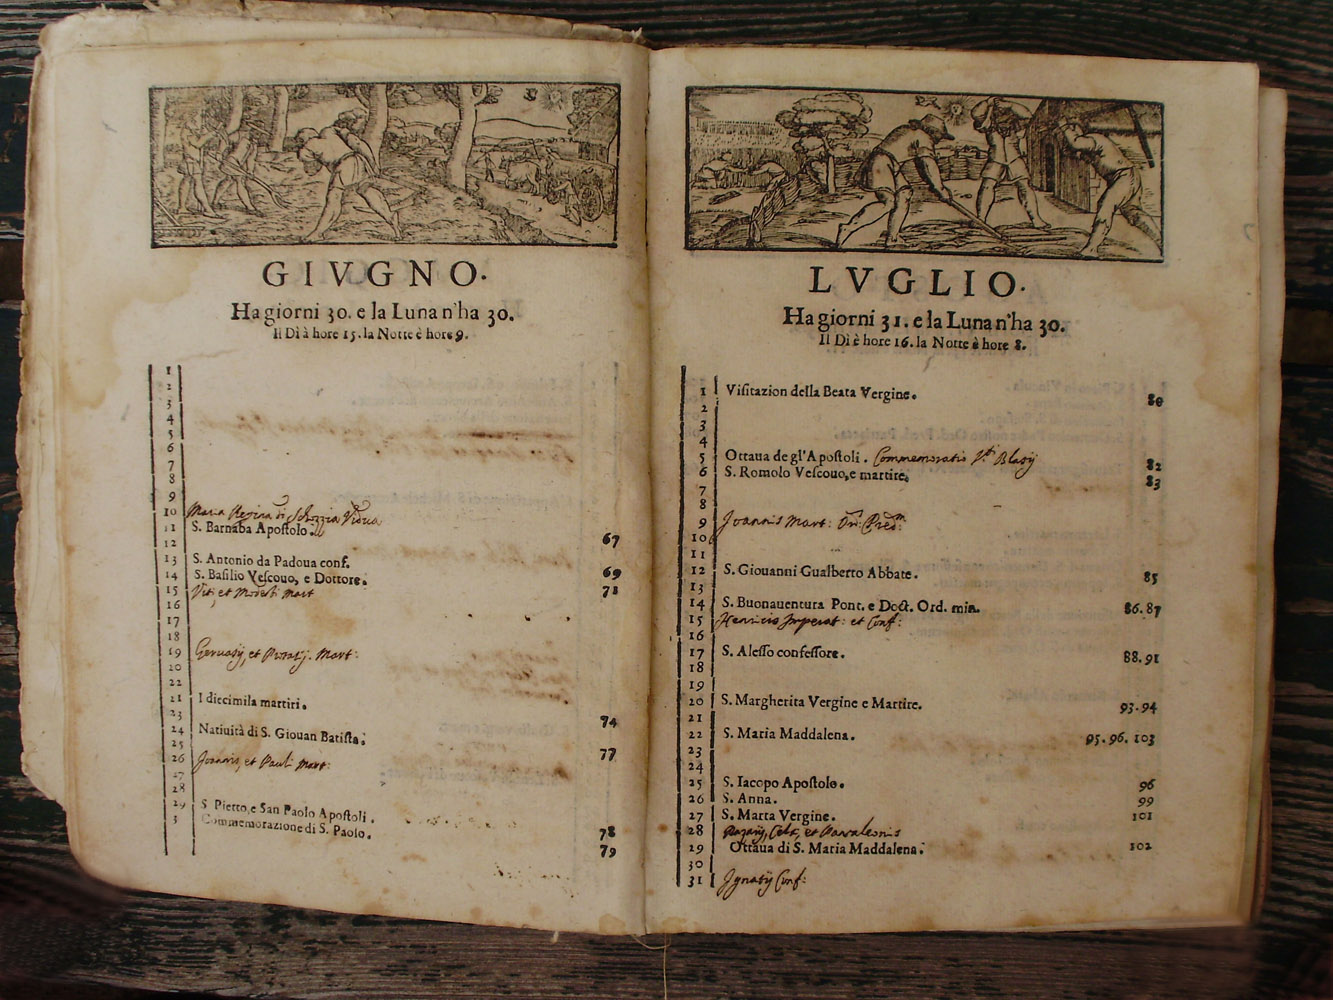 GIVGNO.
Ha giorni 30. e la Luna n'ha 30.
Il Dì à hore 15. la Notte è hore 9.
1
2
3
4
5
6
7
8
9
10 Maria Regina di Schozzia Vidua
11 S. Barnaba Apostolo. 67
12
13 S. Antonio da Padoua conf. 69
14 S. Basilio Vescouo, e Dottore. 71
15 Viti et Modesti Mart
16
17
18
19 Geruasij, et Protasij. Mart:
20
22
21 I diecimila martiri. 74
23
24 Natiuità di S. Giouan Batista. 77
25
26 Joannis, et Pauli Mart:
27
28
29 S Pietro, e San Paolo Apostoli. 78
3 Commemorazione di S. Paolo. 79
LVGLIO.
Ha giorni 31. e la Luna n'ha 30.
Il Dì è hore 16. la Notte è hore 8.
1 Visitazion della Beata Vergine. 80
2
3
4
5 Ottaua de gl'Apostoli. Commemoratio Blasij 82
6 S. Romolo Vescouo, e martire. 83
7
8
9 Joannis Mart:
10
11
12 S. Giouanni Gualberto Abbate. 85
13
14 S. Buonauentura Pont. e Doct. Ord. min. 86.87
15 Henricis Imperat: et Conf:
16
17 S. Alesso confessore. 88.91
18
19
20 S. Margherita Vergine e Martire. 93.94
21
22 S. Maria Maddalena. 95.96.103
23
24
25 S. Iacopo Apostolo. 96
26 S. Anna. 99
27 S. Marta Vergine. 101
28 Nazarij, Celsi, et Pantaleonis
29 Ottaua di S. Maria Maddalena. 102
30
31 Ignatij Conf: